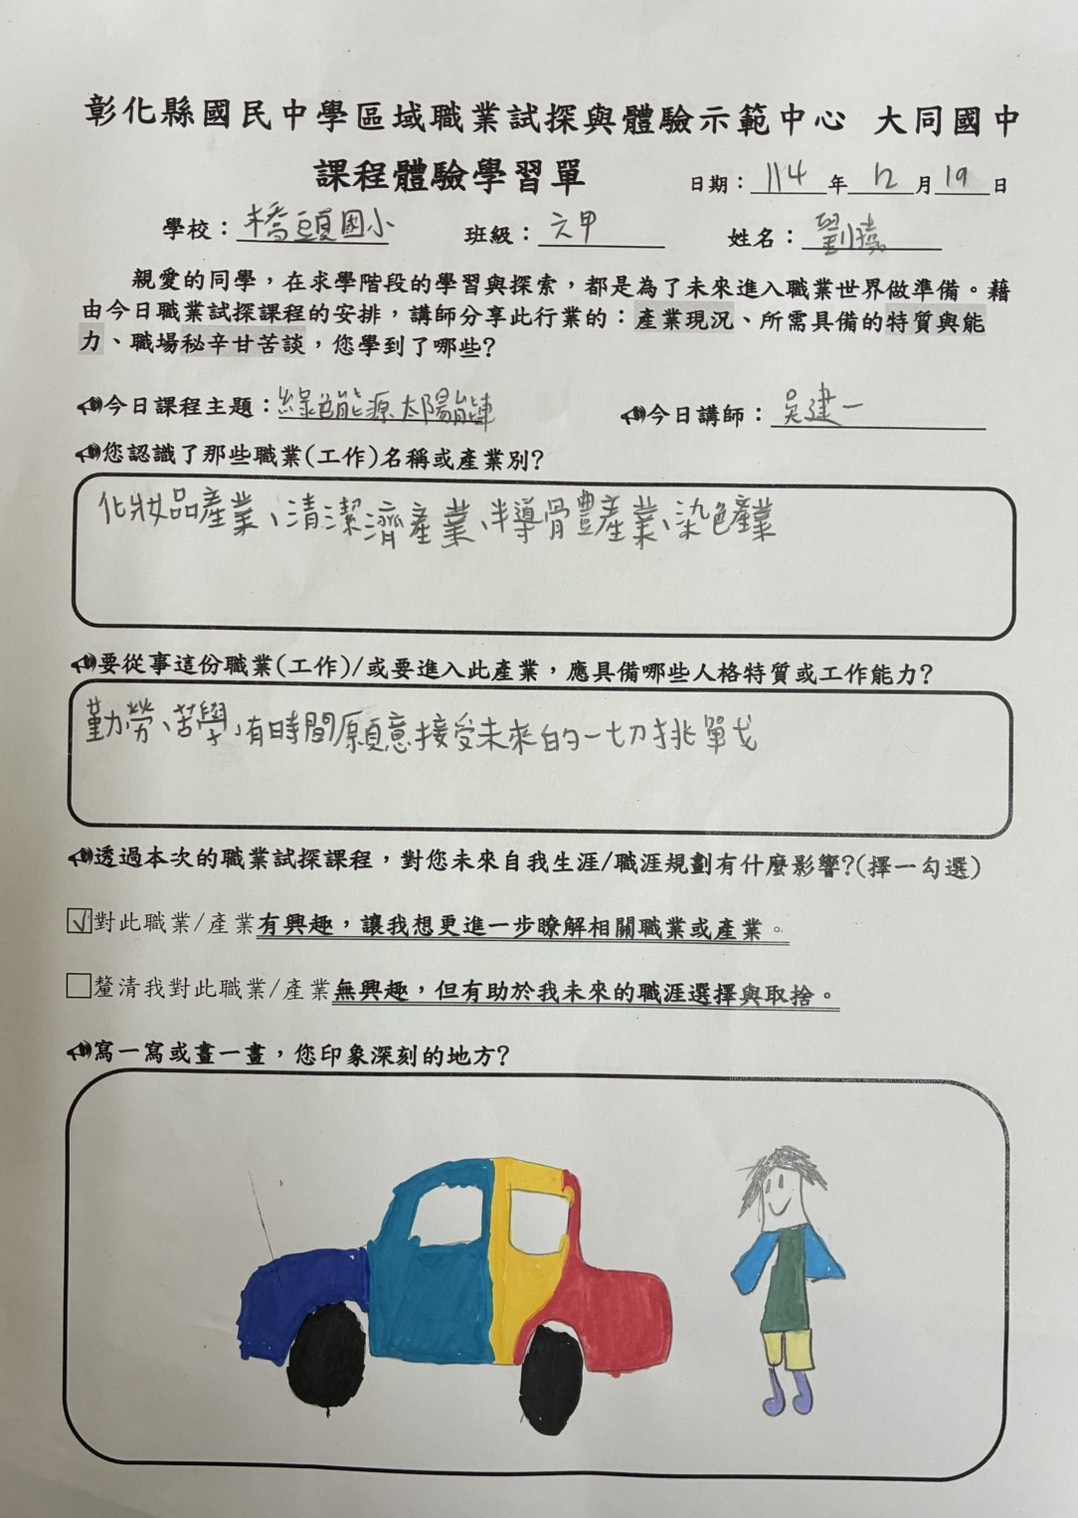 彰化縣國民中學區域職業試探與體驗示範中心 大同國中
課程體驗學習單 日期：114年12月19日
學校：橋頭國小 班級：六甲 姓名：劉
親愛的同學，在求學階段的學習與探索，都是為了未來進入職業世界做準備。藉
由今日職業試探課程的安排，講師分享此行業的：產業現況、所需具備的特質與能
力、職場秘辛甘苦談，您學到了哪些?
今日課程主題：綠色能源太陽能車 今日講師：吳建一
您認識了那些職業(工作)名稱或產業別?
化妝品產業、清潔濟產業、半導骨豐產業、染色產業
要從事這份職業(工作)/或要進入此產業，應具備哪些人格特質或工作能力?
勤勞、苦學、有時間願意接受未來的一切挑單戈
透過本次的職業試探課程，對您未來自我生涯/職涯規劃有什麼影響?(擇一勾選)
☑對此職業/產業有興趣，讓我想更進一步瞭解相關職業或產業。
☐釐清我對此職業/產業無興趣，但有助於我未來的職涯選擇與取捨。
寫一寫或畫一畫，您印象深刻的地方?